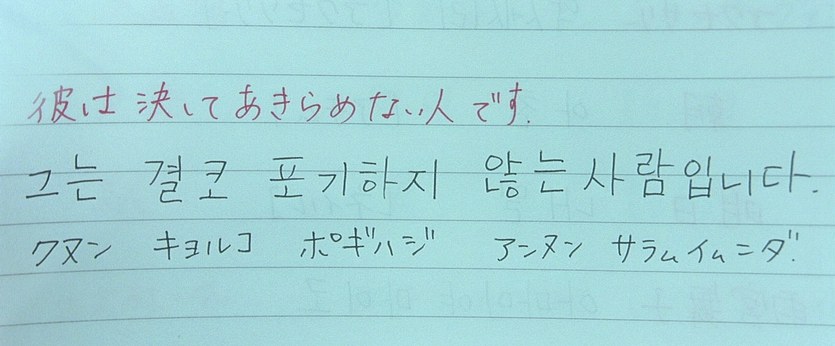 彼は決してあきらめない人です.
그는 결코 포기하지 않는 사람입니다.
クヌン キョルコ ポギハジ アンヌン サラムイムニダ.